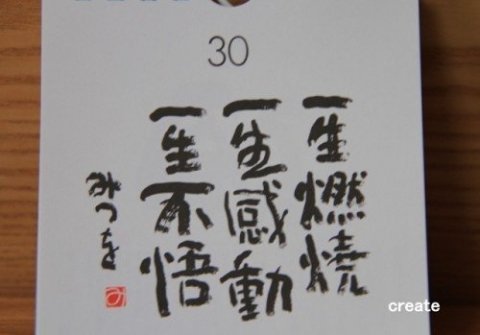 30
一生燃焼
一生感動
一生不悟
みつを
み
create